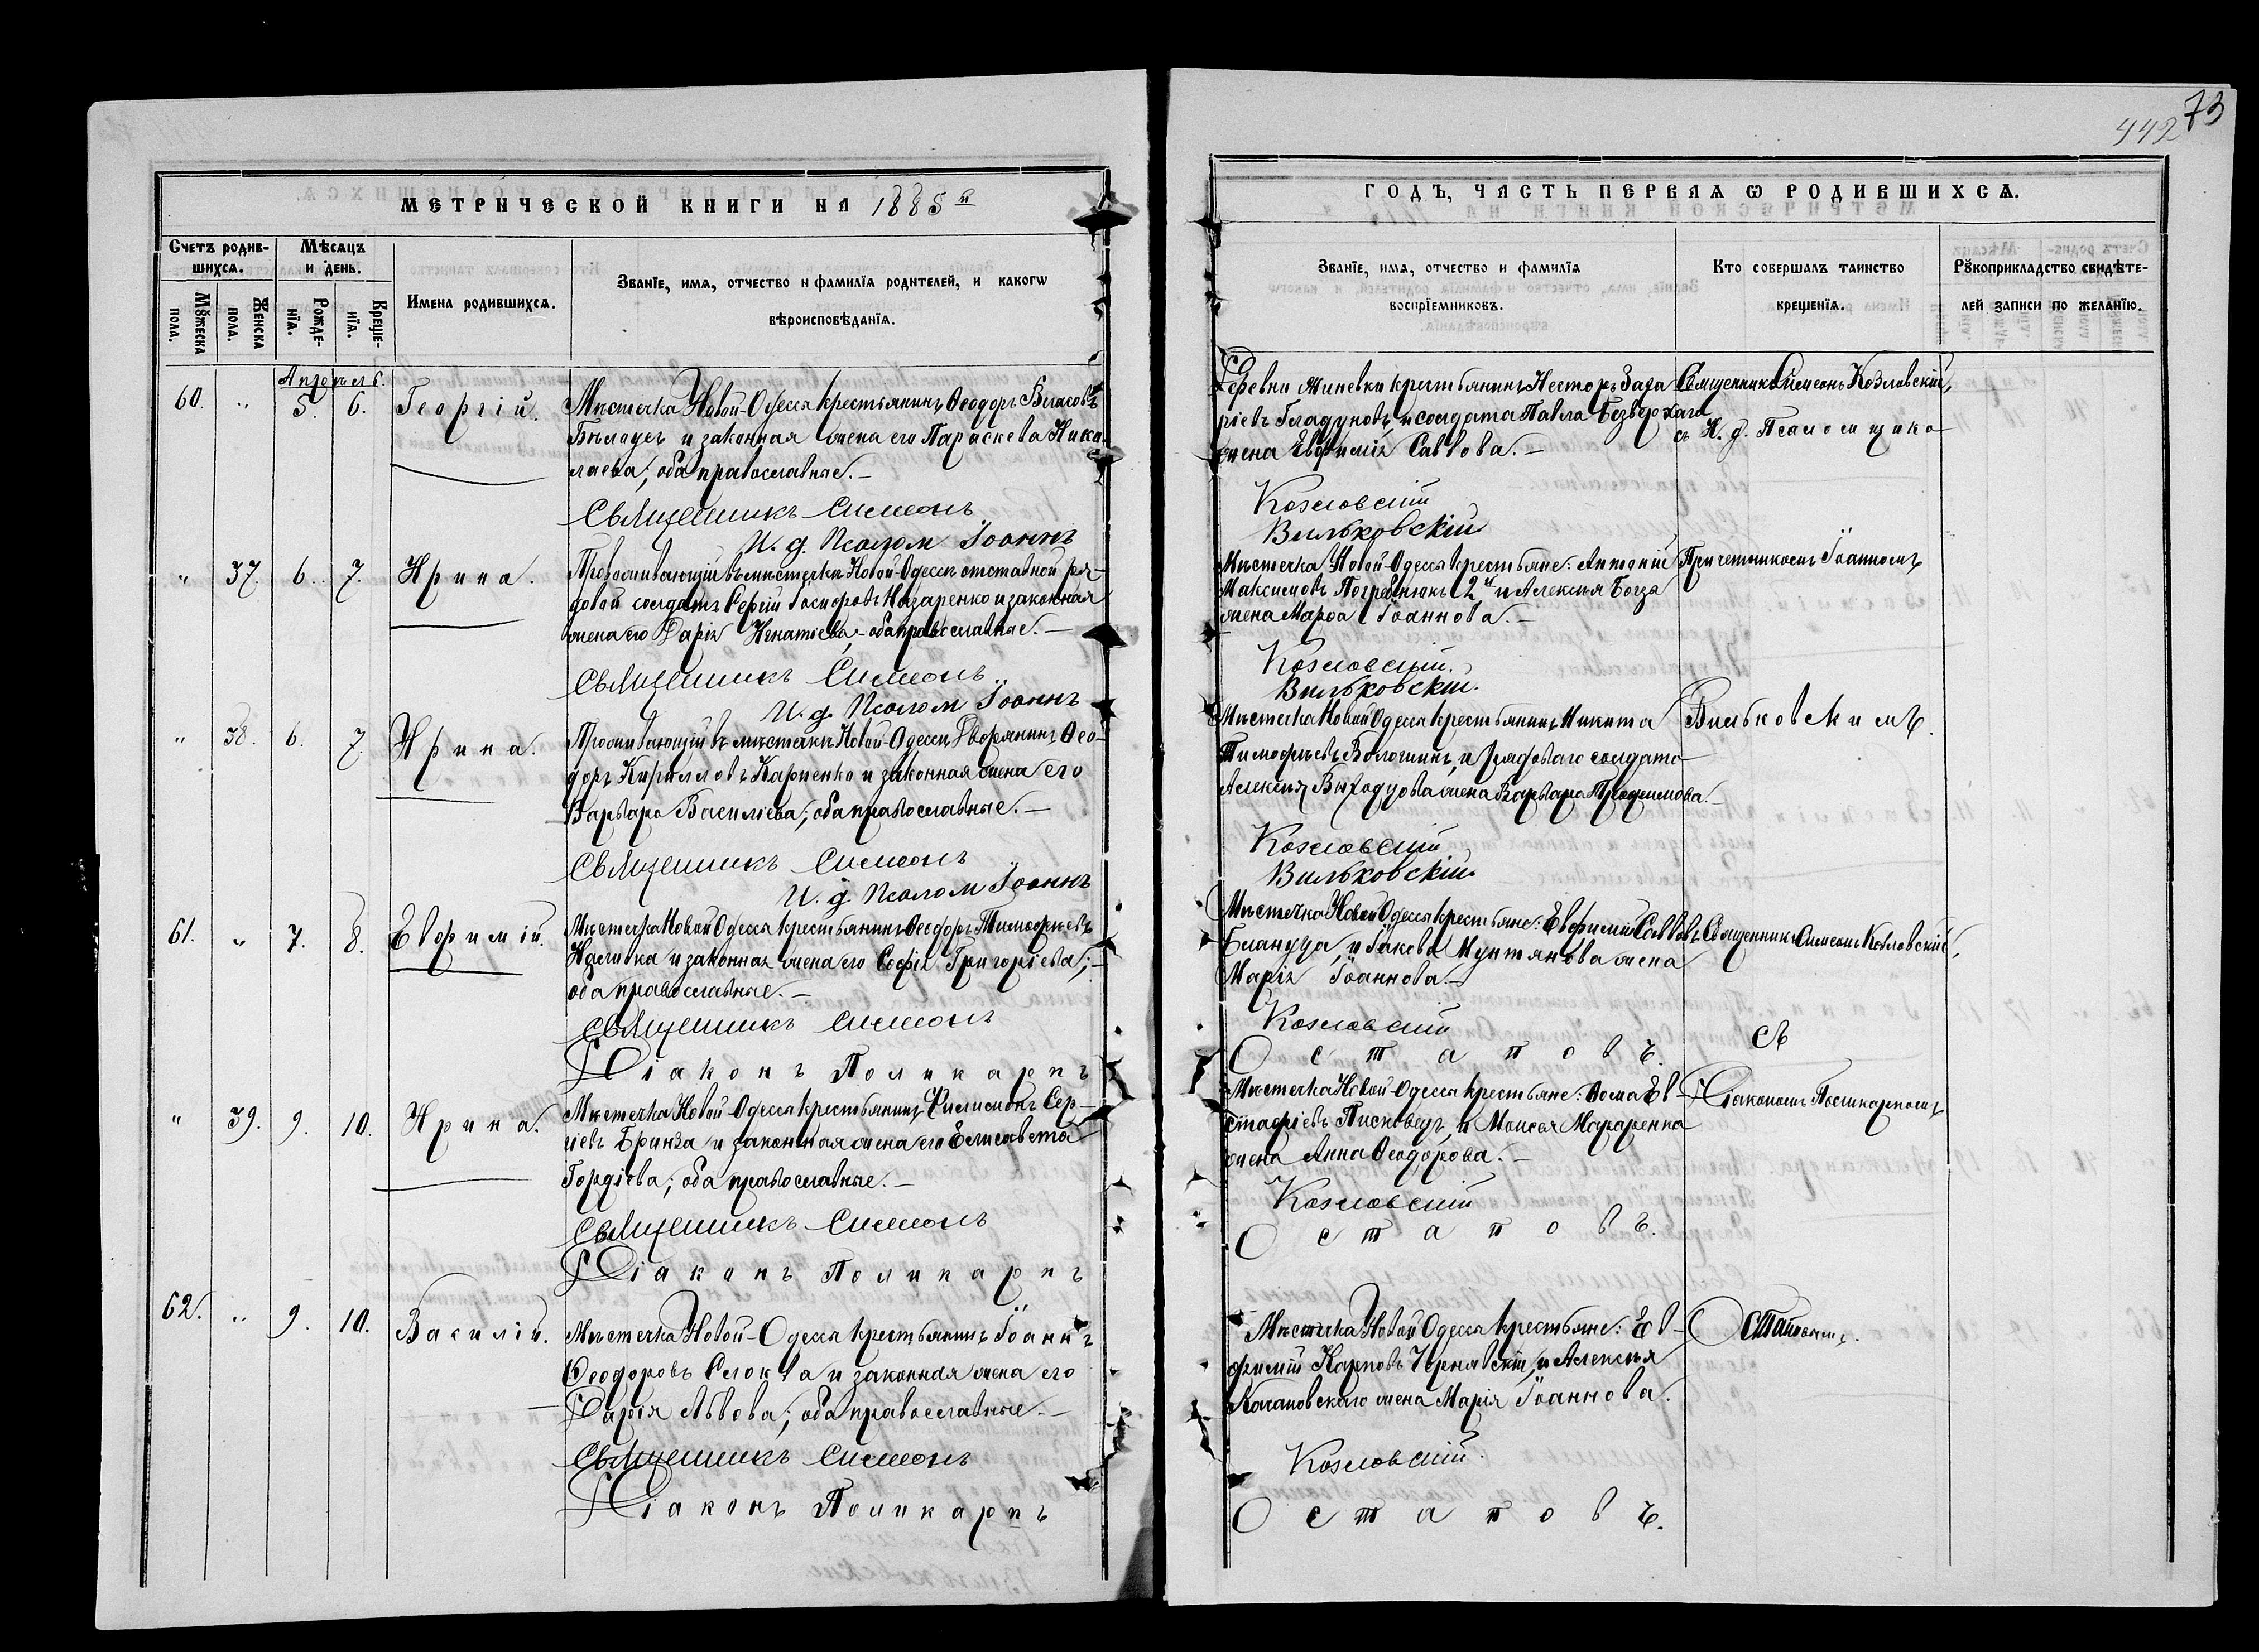 73
442
МЕТРИЧЕСКОЙ КНИГИ НА 1885й
Счетъ родив-
шихся.
Мѣсяцъ
и день.
Мꙋжеска
пола.
Женска
пола.
Рожде-
нїя.
Креще-
нїя.
Имена родившихся.
Званїе, имя, отчество и фамилїя родителей, и какогѡ
вѣроисповѣданїя.
Апрѣль.
60. " 5. 6. Георгій.
Мѣстечка Новой-Одессы крестьянинъ Ѳеодоръ Власовъ
Бѣлоусъ и законная жена его Параскева Нико
лаева, оба православные.–
Священникъ Симеонъ
И. д. Псалом Іоаннъ
" 37. 6. 7. Ирина.
Проживающій въ мѣстечкѣ Новой-Одессѣ отставной ря-
довой солдатъ Сергій Іосифовъ Назаренко и законная
жена его Дарія Игнатіева, оба православные.–
Священникъ Симеонъ
И. д. Псалом Іоаннъ
" 38. 6. 7. Ирина.
Проживающій въ мѣстечкѣ Новой-Одессѣ Дворянинъ Ѳео-
доръ Кирилловъ Карпенко и законная жена его
Варвара Василіева; оба православные.–
Священникъ Симеонъ
И. д. Псалом Іоаннъ
61. " 7. 8. Евфимій.
Мѣстечка Новой Одессы крестьянинъ Ѳеодоръ Тимофѣевъ
и законная жена его Софія Григоріева;–
оба православные.–
Священникъ Симеонъ
Діаконъ Поликарпъ
" 39. 9. 10. Ирина.
Мѣстечка Новой-Одессы крестьянинъ Филимонъ Сер-
гіевъ Бринза и законная жена его Елисавета
Гордіева; оба православные.–
Священникъ Симеонъ
Діаконъ Поликарпъ
62. " 9. 10. Василій.
Мѣстечка Новой-Одессы крестьянинъ Іоаннъ
Ѳеодоровъ и законная жена его
Дарія Львова; оба православные.–
Священникъ Симеонъ
Діаконъ Поликарпъ
ГОДЪ, ЧАСТЬ ПЕРВАЯ Ѡ РОДИВШИХСЯ.
Званїе, имя, отчество и фамилїя
воспрїемниковъ.
Кто совершалъ таинство
крещенїя.
Рꙋкоприкладство свидѣте-
лей записи по желанїю.
Деревни Миневки крестьянинъ Несторъ Заха
ріевъ Гладуновъ, и солдата Павла Безверхаго
жена Евфимія Саввова.–
Козловскій
Вильковскій
Мѣстечка Новой-Одессы крестьяне: Антоній
Максимовъ Погребнюкъ 2й и Алексѣя Богза
жена Марѳа Іоаннова.–
Козловскій.
Вильковскій.
Мѣстечка Новой Одессы крестьянинъ Никита
Тимофѣевъ и рядоваго солдата
Алексѣя жена Варвара Трофимова.–
Козловскій
Вильковскій
Мѣстечка Новой Одессы крестьяне: Евфимій Саввовъ
и Іакова Мунтянова жена
Марія Іоаннова.–
Козловскій
Остаповъ.
Мѣстечка Новой-Одессы крестьяне: Ѳома Ев-
стафіевъ и Моисея Макаренка
жена Анна Ѳеодорова.–
Козловскій
Остаповъ.
Мѣстечка Новой Одессы крестьяне: Ев-
фимій Карповъ Чернявскій, и Алексѣя
жена Марія Іоаннова.
Козловскій.
Остаповъ.
Священникъ Симеонъ Козловскій,
съ И. д. Псаломщика
Причетникомъ Іоанномъ
Вильковскимъ.
Священникъ Симеонъ Козловскій,
съ
Діакономъ Поликарпомъ
Остаповымъ.